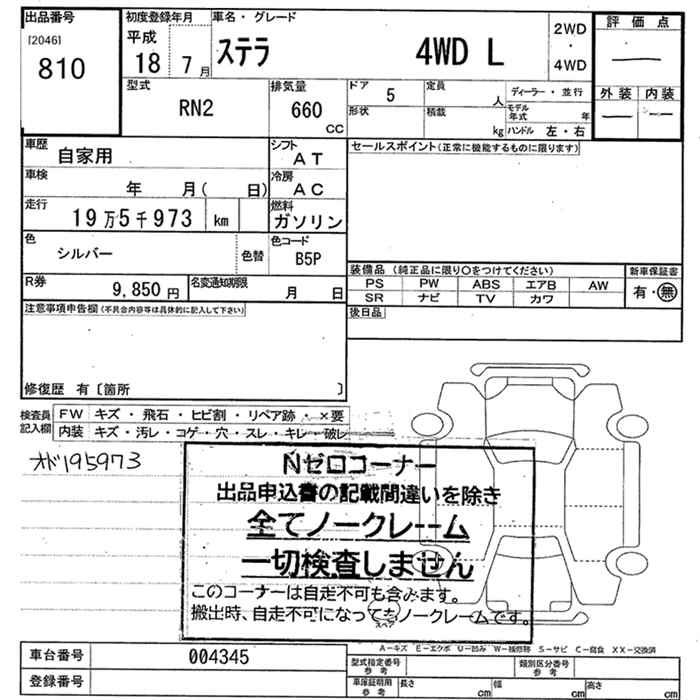 出品番号
[2046]
810
初度登録年月
平成
18 7月
車名・グレード
ステラ 4WD L
2WD
・
4WD
評価点
外装 内装
型式
RN2
排気量
660
CC
ドア 5
定員
人
ディーラー・並行
形状
積載
kg
モデル年式 年
ハンドル 左・右
車歴
自家用
シフト
AT
セールスポイント(正常に機能するものに限ります)
車検
年 月( 日)
冷房
AC
走行
19万5千973 km
燃料
ガソリン
色
シルバー
色替
色コード
B5P
装備品 (純正品に限り○をつけてください)
新車保証書
PS PW ABS エアB AW
有・無
SR ナビ TV カワ
R券
9,850円
名変通知期限
月 日
後日品
注意事項申告欄(不具合内容等は具体的に記入して下さい)
修復歴 有〔箇所 〕
検査員記入欄
FW キズ・飛石・ヒビ割・リペア跡・×要
内装 キズ・汚レ・コゲ・穴・スレ・キレ・破レ
オド195973
Nゼロコーナー
出品申込書の記載間違いを除き
全てノークレーム
一切検査しません
このコーナーは自走不可も含みます。
搬出時、自走不可になってもノークレームです。
スペア
A-キズ E-エクボ U-凹み W-補修跡 S-サビ C-腐食 XX-交換済
車台番号 004345
登録番号
型式指定番号
参考
類別区分番号
参考
車庫証明用
参考
長さ cm
幅 cm
高さ cm